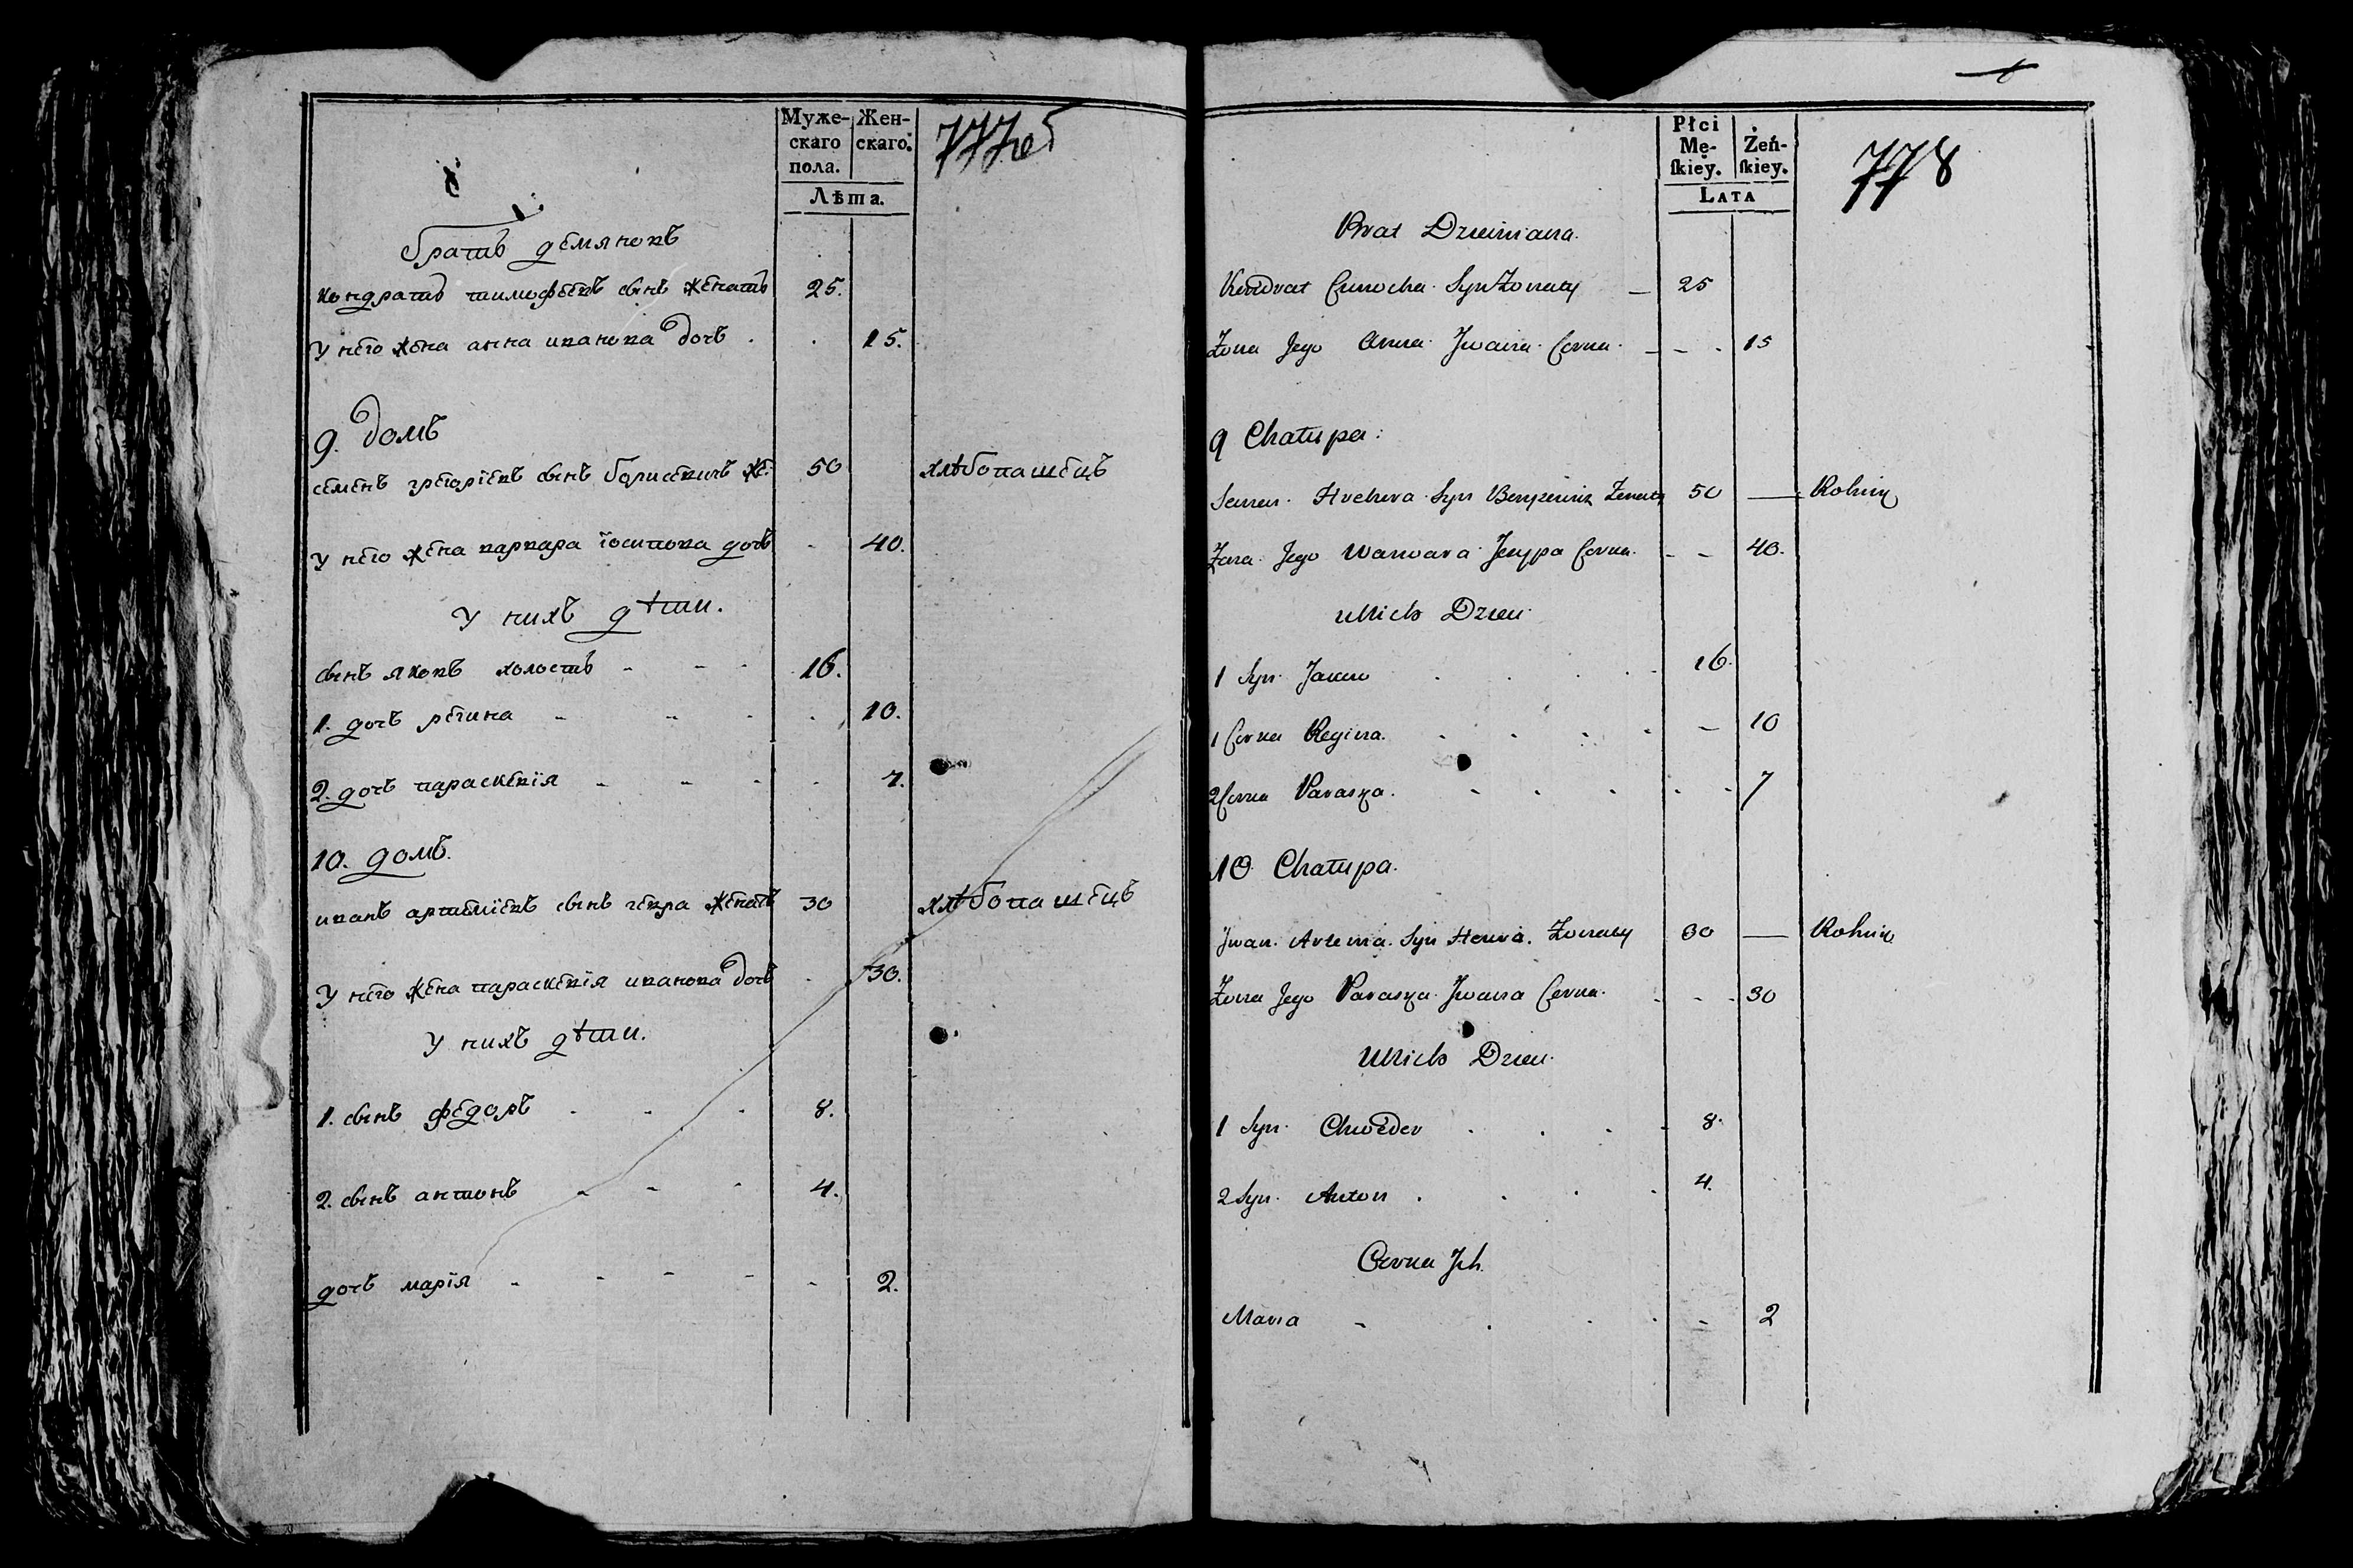 Муже- Жен-
скаго скаго.
пола.
Лѣта.
братъ демяновъ
кондратъ тимофеевъ сынъ женатъ 25.
у него жена анна иванова дочь 15.
9. домъ
семенъ грегорїевъ сынъ борисевичъ же: 50 хлѣбопашецъ
у него жена варвара їосипова дочь 40.
у нихъ дѣти.
сынъ яковъ холостъ 16.
1. дочь регина 10.
2. дочь параскевїя 7.
10. домъ.
иванъ артемїевъ сынъ гевра женатъ 30 хлѣбопашецъ
у него жена параскевїя иванова дочь 30.
у нихъ дѣти.
1. сынъ федоръ 8.
2. сынъ антонъ 4.
дочь марїя 2.
Płci
Mę- Żeń-
ſkiey. ſkiey.
LATA
778
Brat Dziemiana.
Kondrat Syn Żonaty 25
Żona Jego Anna Jwana Corka 15
9 Chałupa:
Semen Syn 50 Rolnik
Żona Jego Warwara Jozypa Corka 40.
u Nich Dzieci
1 Syn Jakow 16.
1 Corka Regina. 10
2 Corka Paraska. 7
10 Chałupa.
Jwan Artema Syn Hewra. Żonaty 30 Rolnik
Żona Jego Paraska Jwana Corka. 30
U Nich Dzieci
1 Syn Chwedor 8.
2 Syn Anton 4.
Corka Jch.
Maria 2